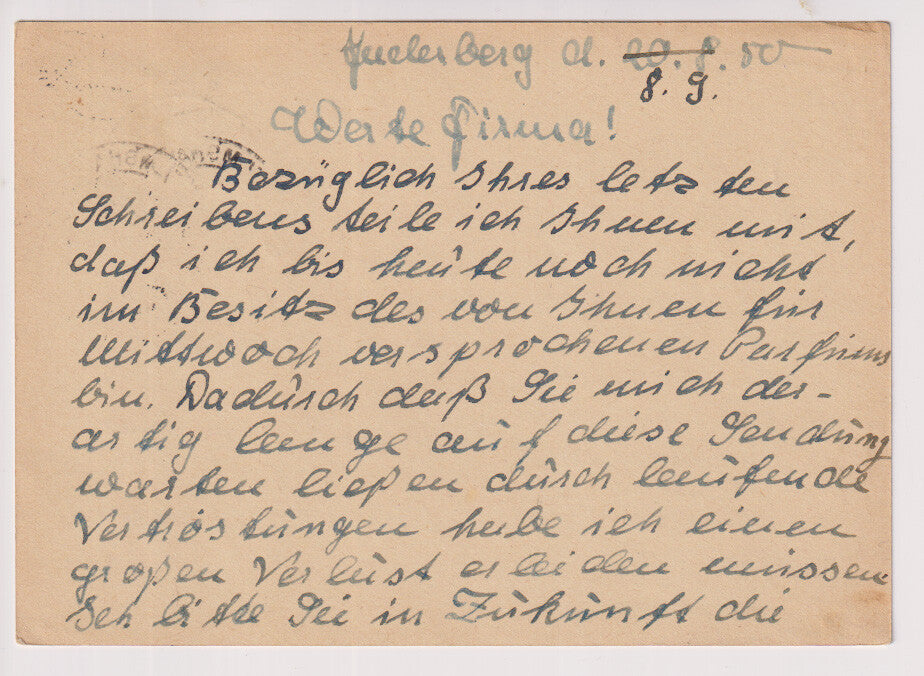 Huderberg d. 20. 8. 50
8. 9.
Werte Firma!
Bezüglich Ihres letzten
Schreibens teile ich Ihnen mit,
daß ich bis heute noch nicht
im Besitz des von Ihnen für
Mittwoch versprochenen Parfüms
bin. Dadurch daß Sie mich der-
artig lange auf diese Sendung
warten ließen durch laufende
Vertröstungen habe ich einen
großen Verlust erleiden müssen.
Ich bitte Sie in Zukunft die